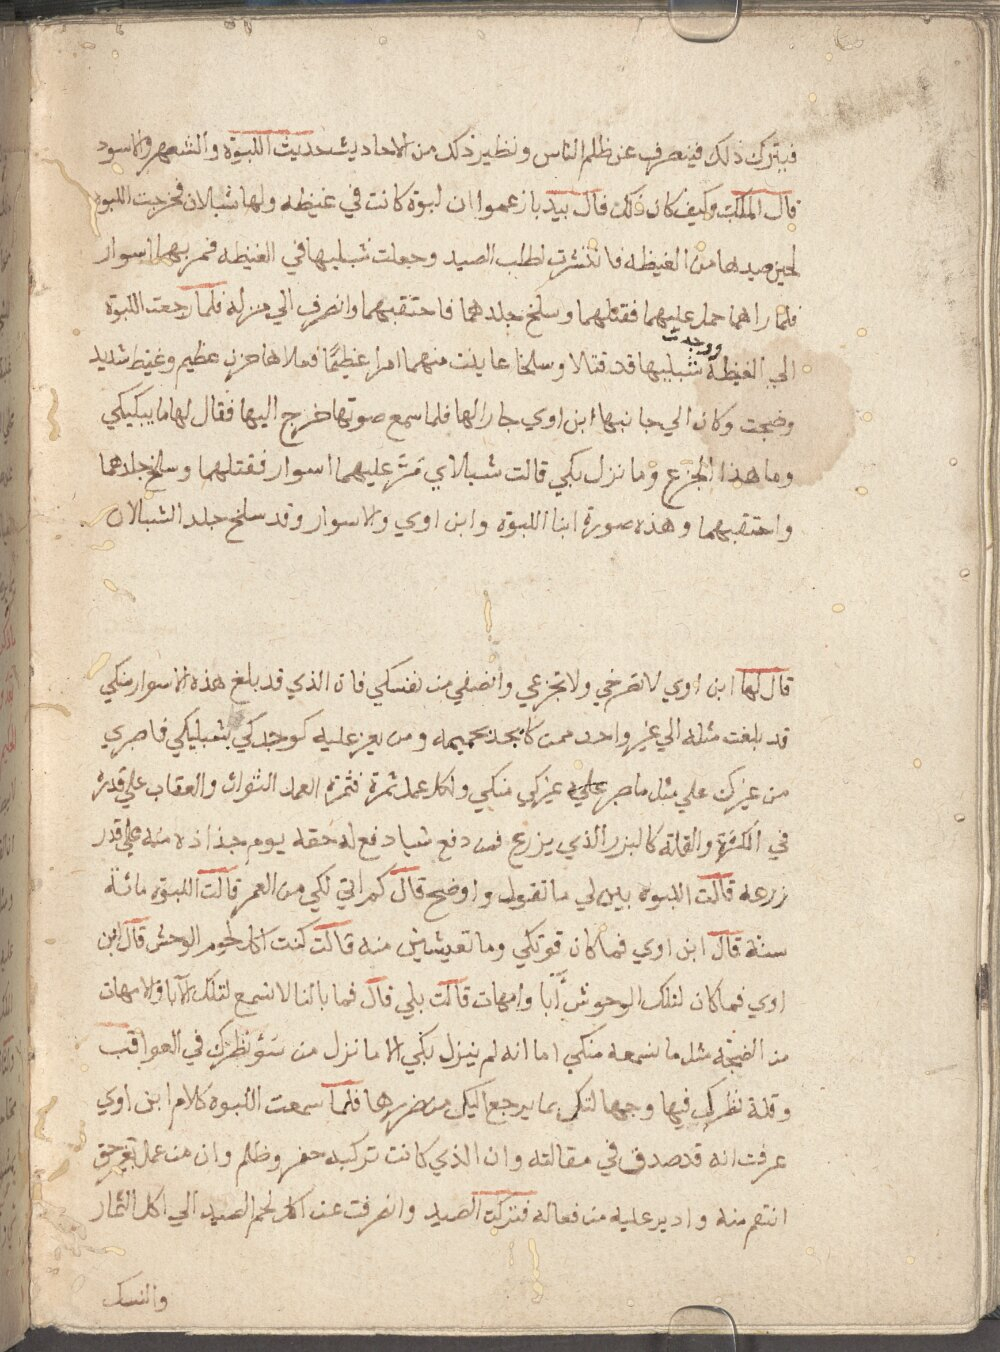 فيترك ذلك فينصرف عن ظلم الناس ونظير ذلك من الاحاديث حديث اللبوة والشعهر والاسود
قال الملك وكيف كان ذلك قال بيدبا زعموا ان لبوة كانت في غيضه ولها شبلان فخرجت اللبوه
لحين صيدها من الغيظه فانتشرت لطلب الصيد وجعلت شبليها في الغيظه فمر بهما اسوار
فلما راهما حمل عليهما فقتلهما وسلخ جلدهما فاحتقبهما وانصرف الي منزله فلما رجعت اللبوة
الي الغيظة ووجدت شبليها قد قتلا وسلخا عاينت منهما امرا عظيما فعلاها حزن عظيم وغيظ شديد
وضجت وكان الي جانبها ابن اوي جارا لها فلما سمع صوتها خرج اليها فقال لها ما يبكيكي
وما هذا الجزع وما نزل بكي قالت شبلاي مر عليهما اسوار فقتلهما وسلخ جلدهما
واحتقبهما وهذه صورة ابنا اللبوة وابن اوي والاسوار وقد سلخ جلد الشبلان
قال لها ابن اوي لا تصرخي ولا تجزعي وانصفي من نفسكي فان الذي قد بلغ هذه الاسوار منكي
قد بلغت مثله الي غير واحد ممن كان يجد بحميمه ومن يعز عليه كوجدكي بشبليكي فاصبري
من غيرك علي مثل ما صبر عليه غيركي منكي ولكل عمل ثمرة فثمرة العمل الثواب والعقاب علي قدره
في الكثرة والقلة كالبزر الذي يزرع فمن دفع شيا دفع له حقه يوم جذاذه منه علي قدر
زرعه قالت اللبوه بين لي ما تقول واوضح قال كم اتي لكي من العمر قالت اللبوة مائة
سنة قال ابن اوي فما كان قوتكي وما تعيشين منه قالت كنت اكل لحوم الوحش قال ابن
اوي فما كان لتلك الوحوش آبا وامهات قالت بلي قال فما بالنا لا نسمع لتلك الابا والامهات
من الضجه مثل ما نسمعه منكي اما انه لم ينزل بكي الا ما نزل من سؤ نظرك في العواقب
وقلة نظركي فيها وجهالتك بما يرجع اليكي من ضررها فلما سمعت اللبوه كلام ابن اوي
عرفت انه قد صدق في مقالته وان الذي كانت تركبه حفر وظلم وان من عمل بغير حق
انتقم منه وادير عليه من فعاله فتركت الصيد وانصرفت عن اكل لحم الصيد الي اكل الثمار
والنسك